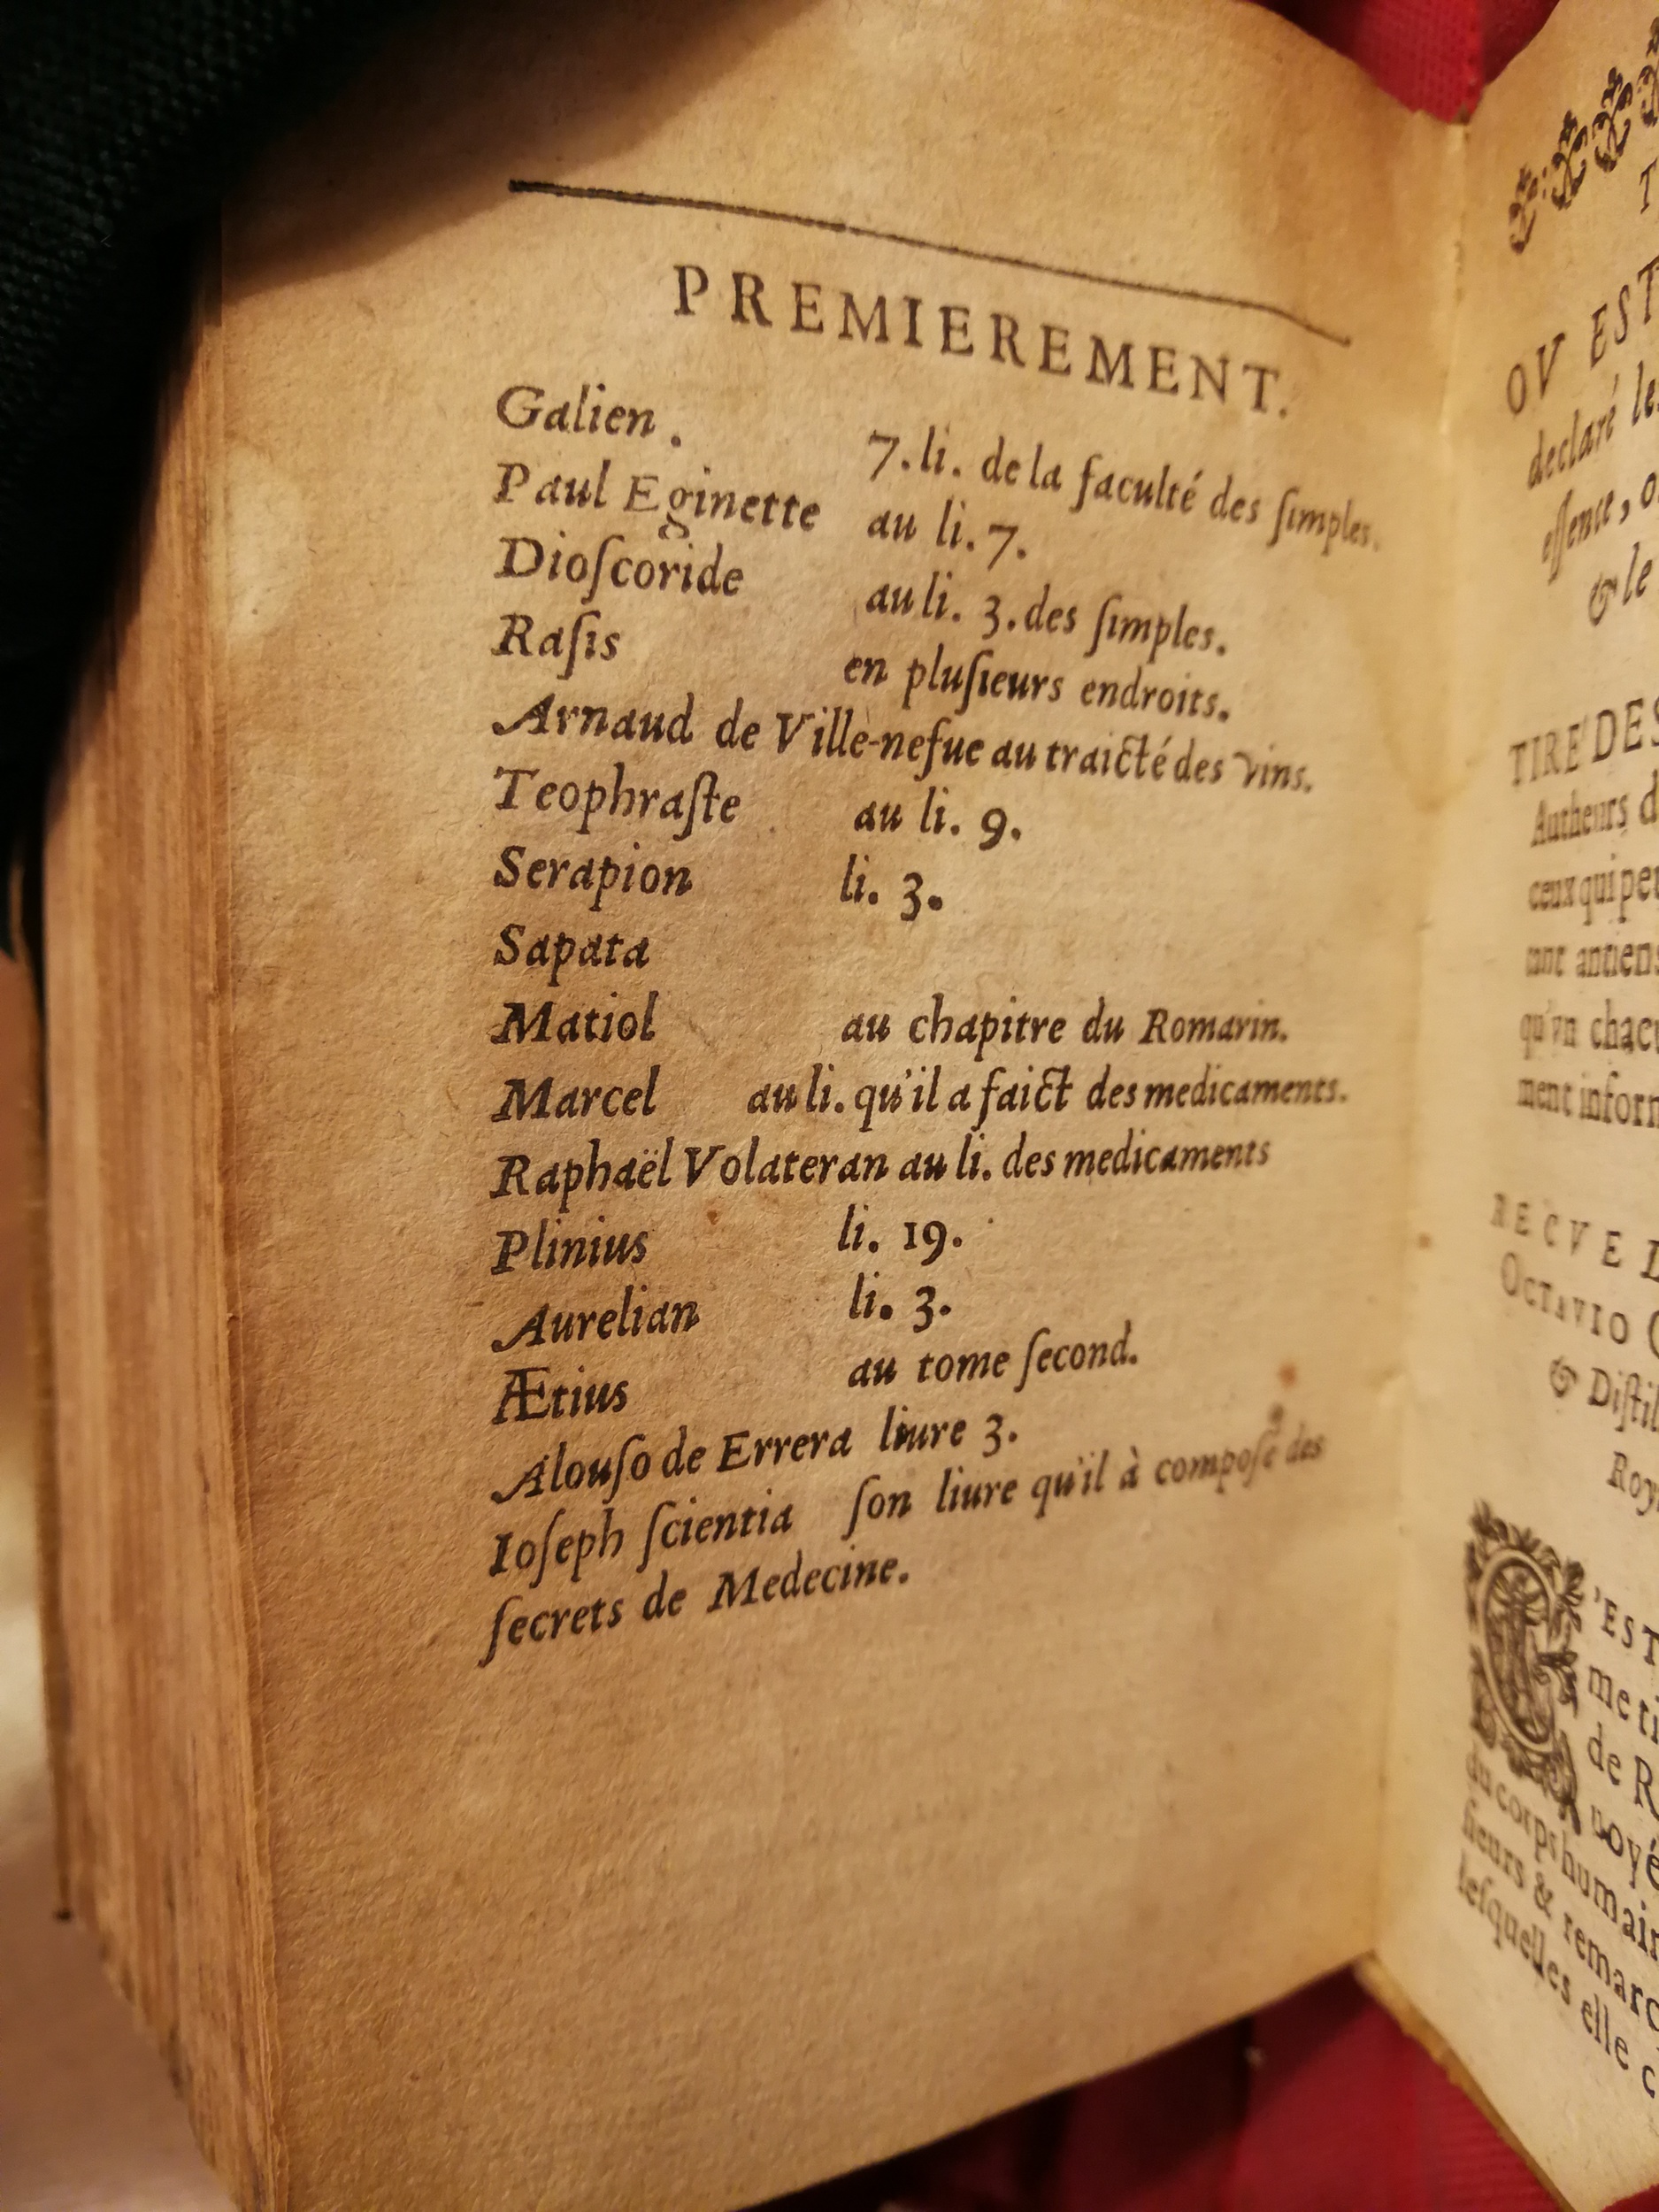 PREMIEREMENT.
Galien. 7. li. de la faculté des ſimples.
Paul Eginette au li. 7.
Dioſcoride au li. 3. des ſimples.
Raſis en pluſieurs endroits.
Arnaud de Ville-nefue au traicté des vins.
Teophraſte au li. 9.
Serapion li. 3.
Sapata
Matiol au chapitre du Romarin.
Marcel au li. qu'il a faict des medicaments.
Raphaël Volateran au li. des medicaments
Plinius li. 19.
Aurelian li. 3.
Ætius au tome ſecond.
Alouſo de Errera liure 3.
Ioſeph ſcientia ſon liure qu'il à compoſé des
ſecrets de Medecine.
OV EST
declaré
eſſence,
& le
TIRE' DES
Autheurs
ceux qui
antiens
qu'vn
OCTAVIO
&
'EST
de
humain
& 
leſquelles elle